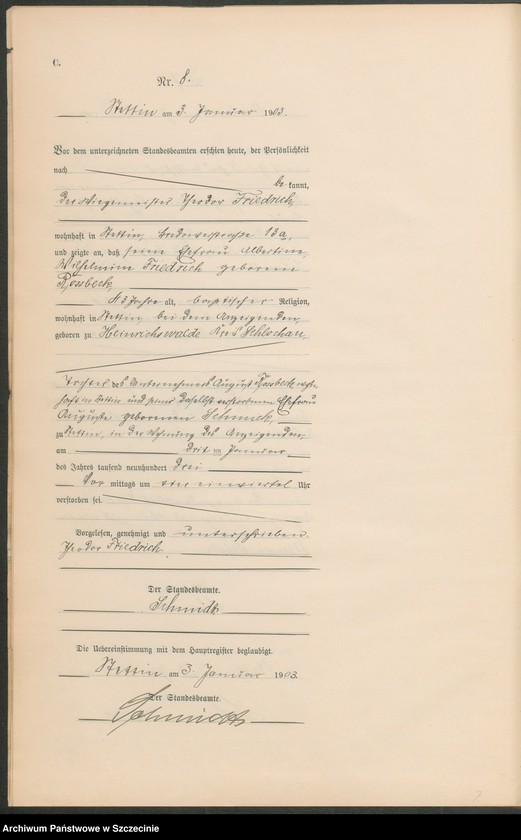 C.
Nr. 8.
Stettin am 3. Januar 1903.
Vor dem unterzeichneten Standesbeamten erschien heute, der Persönlichkeit
nach
be kannt,
der Wiegemeister Theodor Friedrich,
wohnhaft in Stettin, Bredowerstraße 13a,
und zeigte an, daß seine Ehefrau Albertine
Wilhelmine Friedrich geborene
Rossbeck,
Jahre alt, baptischer Religion,
wohnhaft in Stettin bei dem Anzeigenden,
geboren zu Heinrichswalde Kreis Schlochau,
Tochter des Unternehmers August Rossbeck wohn-
haft in Stettin und seiner daselbst verstorbenen Ehefrau
Auguste geborenen Schmuck,
zu Stettin, in der Wohnung des Anzeigenden,
am drit ten Januar
des Jahres tausend neunhundert drei
Vor mittags um ein viertel Uhr
verstorben sei.
Vorgelesen, genehmigt und unterschrieben.
Theodor Friedrich.
Der Standesbeamte.
Schmidt
Die Uebereinstimmung mit dem Hauptregister beglaubigt.
Stettin am 3. Januar 1903.
Der Standesbeamte.
Schmidt
Archiwum Państwowe w Szczecinie